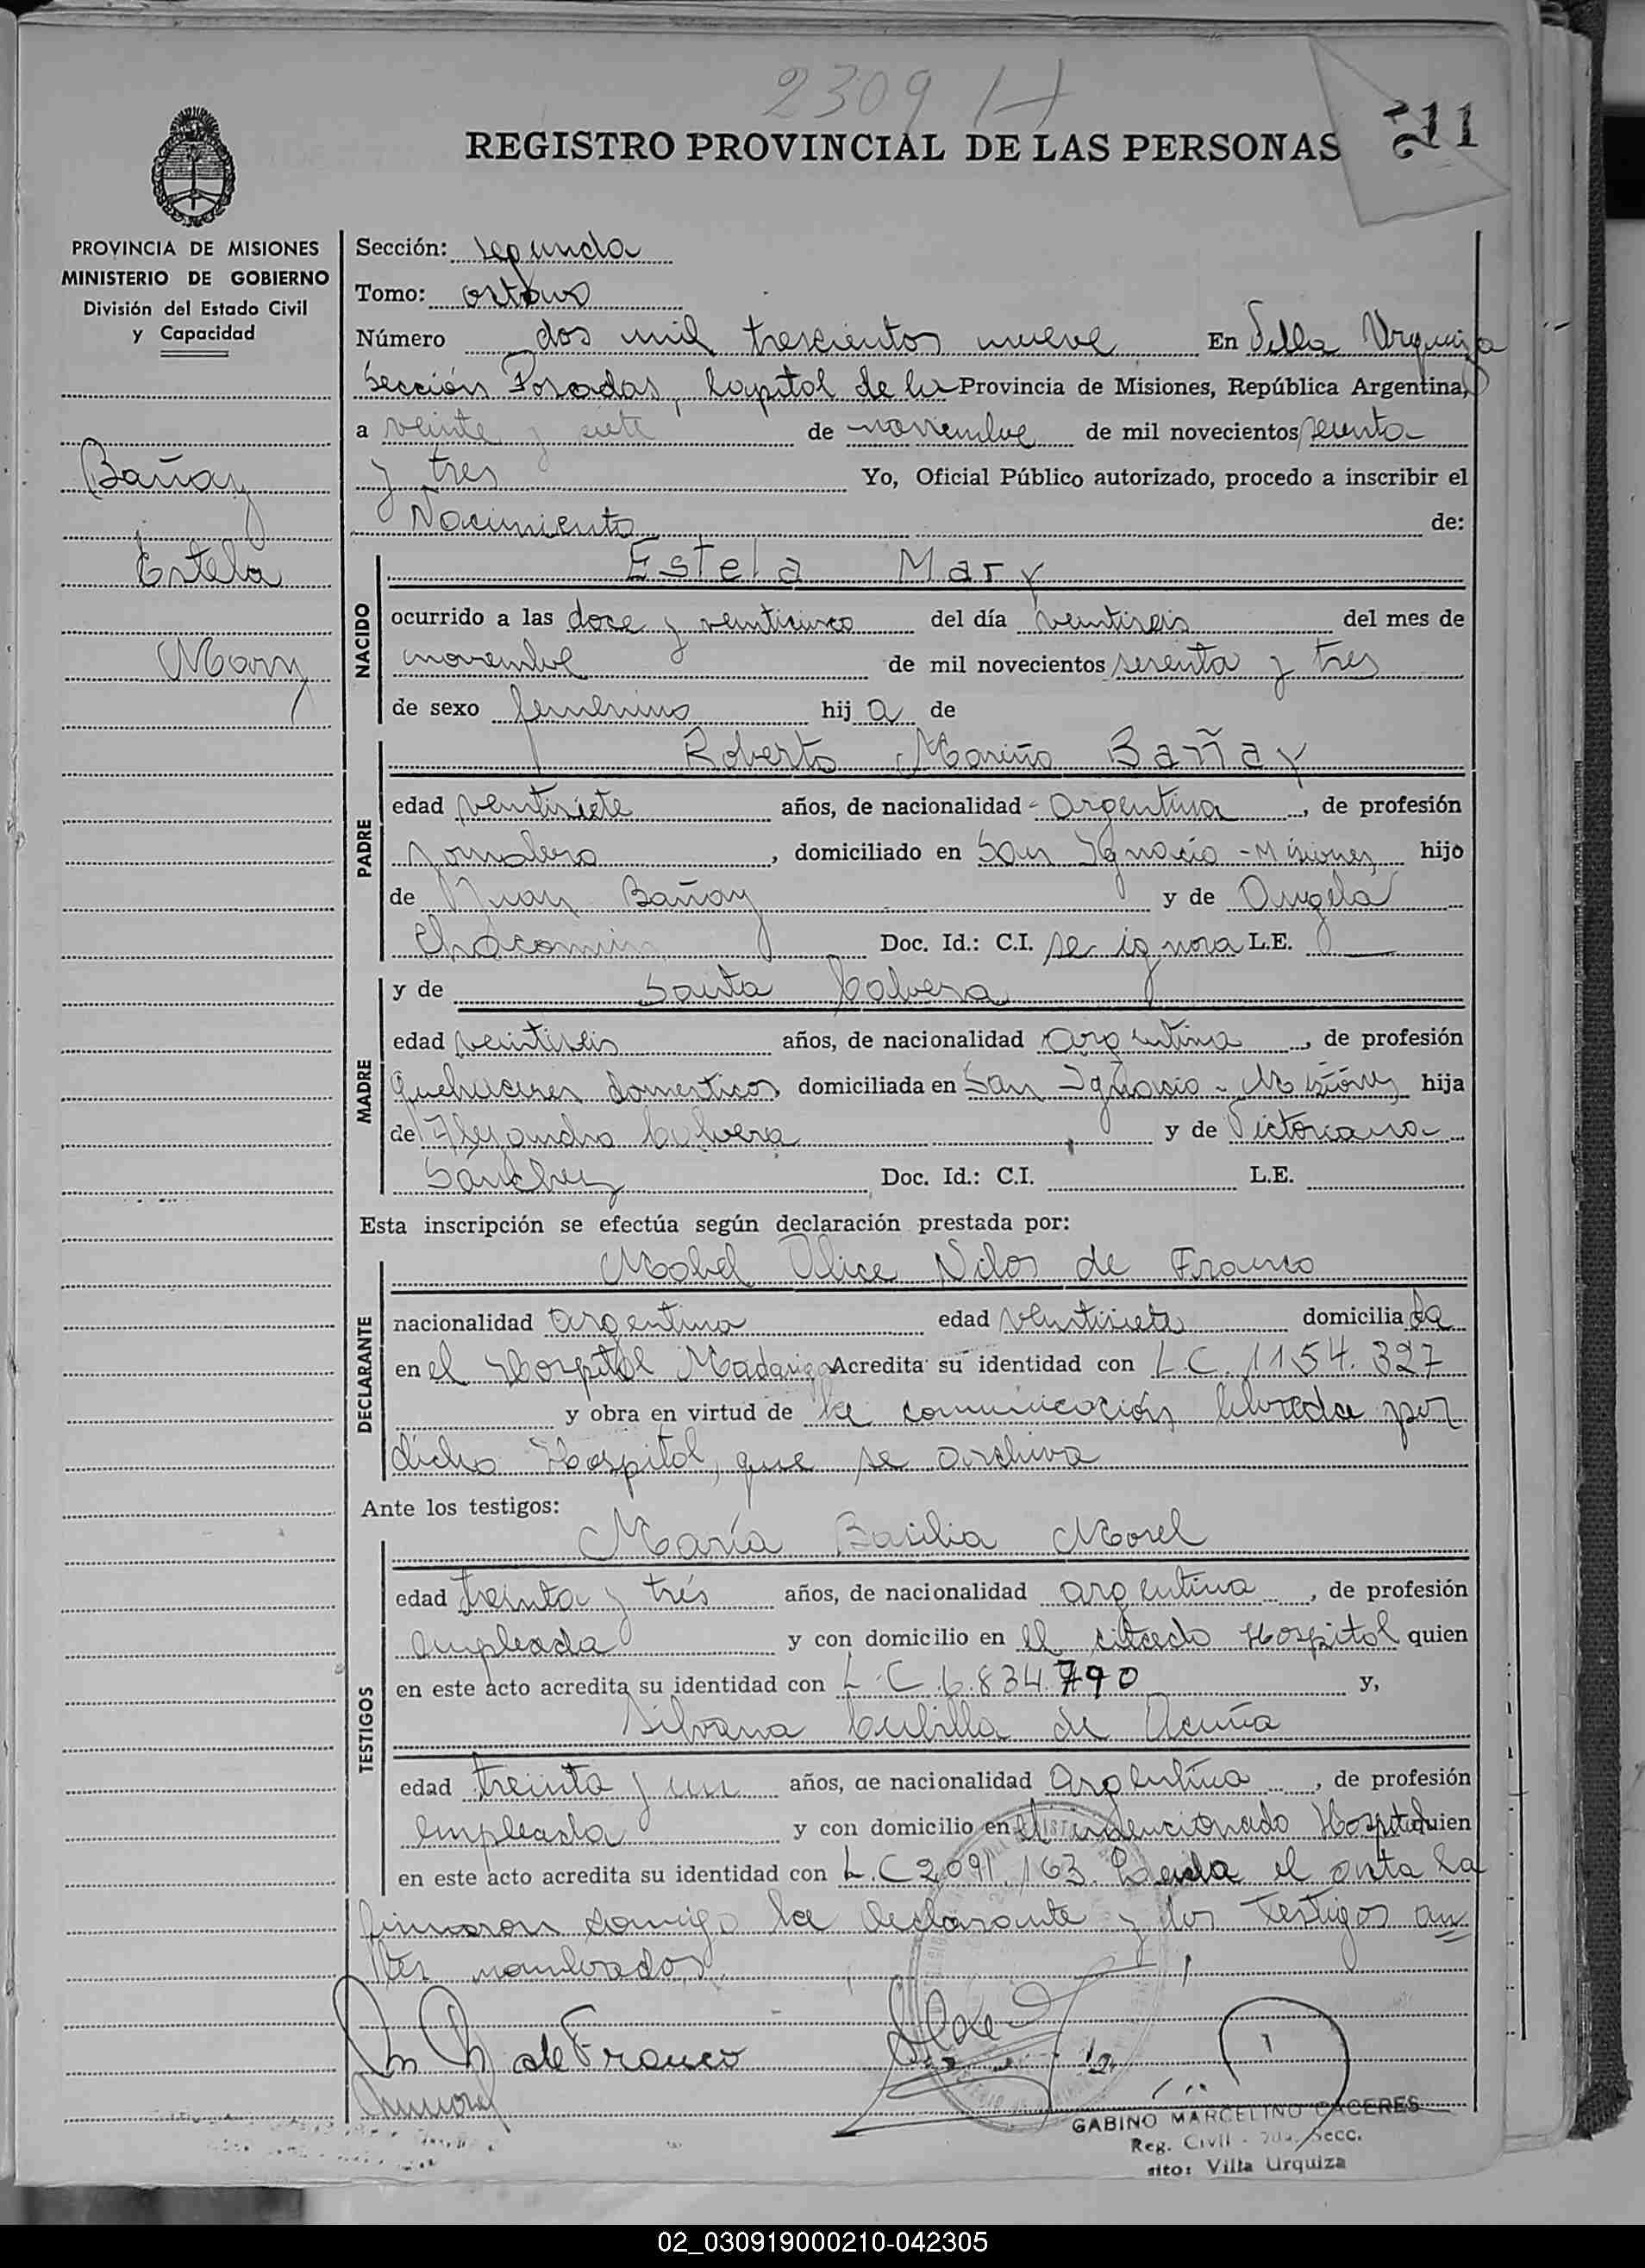 2309 H
REGISTRO PROVINCIAL DE LAS PERSONAS
211
PROVINCIA DE MISIONES
MINISTERIO DE GOBIERNO
División del Estado Civil
y Capacidad
Bañay
Estela
Mary
Sección: segunda
Tomo: octavo
Número dos mil trescientos nueve En Villa Urquiza
Sección Posadas, Capital de la Provincia de Misiones, República Argentina,
a veinte y siete de noviembre de mil novecientos sesenta
y tres Yo, Oficial Público autorizado, procedo a inscribir el
Nacimiento de:
NACIDO
Estela Mary
ocurrido a las doce y veinticinco del día veintiseis del mes de
noviembre de mil novecientos sesenta y tres
de sexo femenino hija de
PADRE
Roberto Mariño Bañay
edad veintisiete años, de nacionalidad argentina, de profesión
Jornalero, domiciliado en San Ignacio - Misiones hijo
de Juan Bañay y de Angela
Doc. Id.: C.I. se ignora L.E.
MADRE
y de Santa
edad veintiseis años, de nacionalidad argentina, de profesión
quehaceres domesticos domiciliada en San Ignacio - Misiones hija
de Alejandro y de Victoriana
Sánchez Doc. Id.: C.I. L.E.
Esta inscripción se efectúa según declaración prestada por:
DECLARANTE
Mabel Alice de Franco
nacionalidad argentina edad veintisiete domiciliada
en el Hospital Madariaga Acredita su identidad con L.C. 1154.327
y obra en virtud de la comunicación librada por
dicho Hospital, que se archiva
Ante los testigos:
TESTIGOS
María Basilia Morel
edad treinta y trés años, de nacionalidad argentina, de profesión
empleada y con domicilio en el citado Hospital quien
en este acto acredita su identidad con L.C 6.834.790 y,
Silvana Cubilla de Acuña
edad treinta y un años, de nacionalidad Argentina, de profesión
empleada y con domicilio en el mencionado Hospital quien
en este acto acredita su identidad con L.C 2.091.163. Leida el acta la
firmaron conmigo la declarante y los testigos an
tes nombrados
de Franco
GABINO MARCELINO CACERES
Reg. Civil - 2da. Secc.
sito: Villa Urquiza
02_030919000210-042305